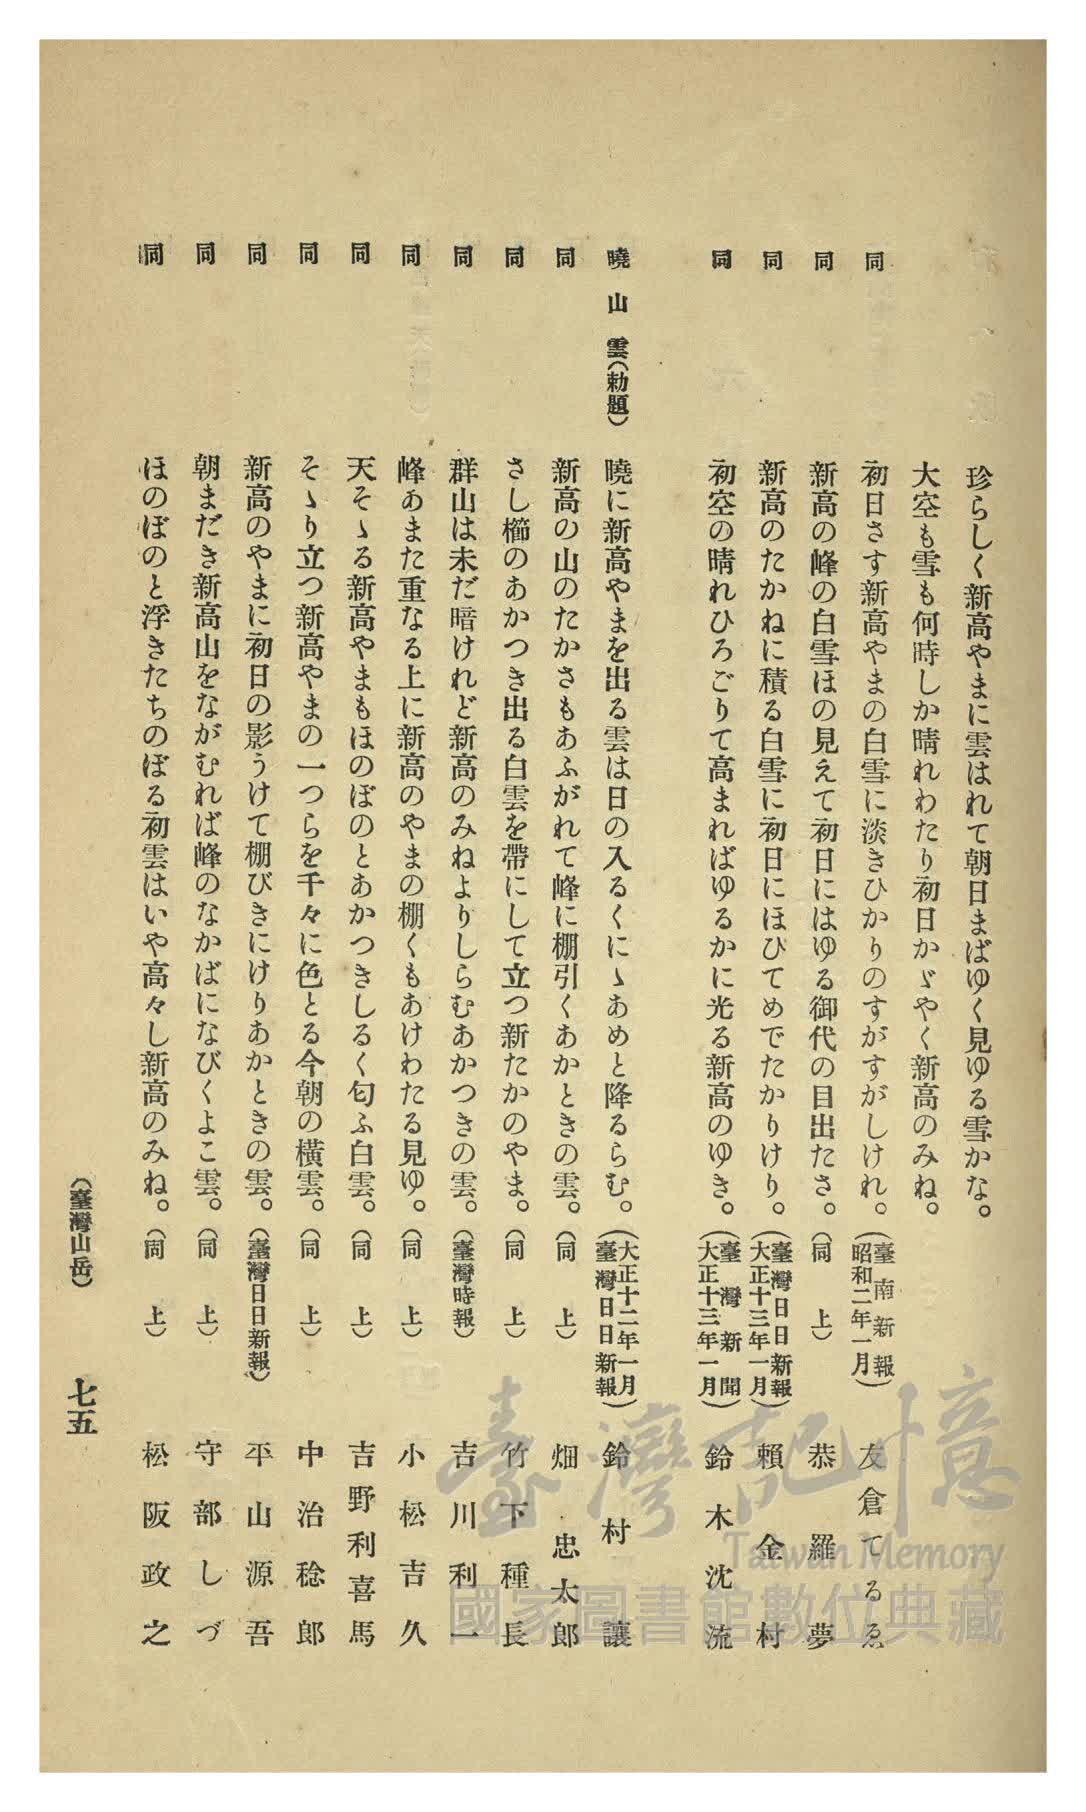 珍らしく新高やまに雲はれて朝日まばゆく見ゆる雪かな。
大空も雪も何時しか晴れわたり初日かゞやく新高のみね。
同 初日さす新高やまの白雪に淡きひかりのすがすがしけれ。(臺南新報 昭和二年一月) 友倉てるゑ
同 新高の峰の白雪ほの見えて初日にはゆる御代の目出たさ。(同 上) 恭羅夢
同 新高のたかねに積る白雪に初日にほひてめでたかりけり。(臺灣日日新報 大正十三年一月) 賴金村
同 初空の晴れひろごりて高まればゆるかに光る新高のゆき。(臺灣新聞 大正十三年一月) 鈴木沈流
曉山雲(勅題) 曉に新高やまを出る雲は日の入るくにゝあめと降るらむ。(大正十二年一月 臺灣日日新報) 鈴村讓
同 新高の山のたかさもあふがれて峰に棚引くあかときの雲。(同 上) 畑忠太郎
同 さし櫛のあかつき出る白雲を帶にして立つ新たかのやま。(同 上) 竹下種長
同 群山は未だ暗けれど新高のみねよりしらむあかつきの雲。(臺灣時報) 吉川利一
同 峰あまた重なる上に新高のやまの棚くもあけわたる見ゆ。(同 上) 小松吉久
同 天そゝる新高やまもほのぼのとあかつきしるく匂ふ白雲。(同 上) 吉野利喜馬
同 そゝり立つ新高やまの一つらを千々に色とる今朝の橫雲。(同 上) 中治稔郎
同 新高のやまに初日の影うけて棚びきにけりあかときの雲。(臺灣日日新報) 平山源吾
同 朝まだき新高山をながむれば峰のなかばになびくよこ雲。(同 上) 守部しづ
同 ほのぼのと浮きたちのぼる初雲はいや高々し新高のみね。(同 上) 松阪政之
(臺灣山岳) 七五
臺灣記憶
Taiwan Memory
國家圖書館數位典藏